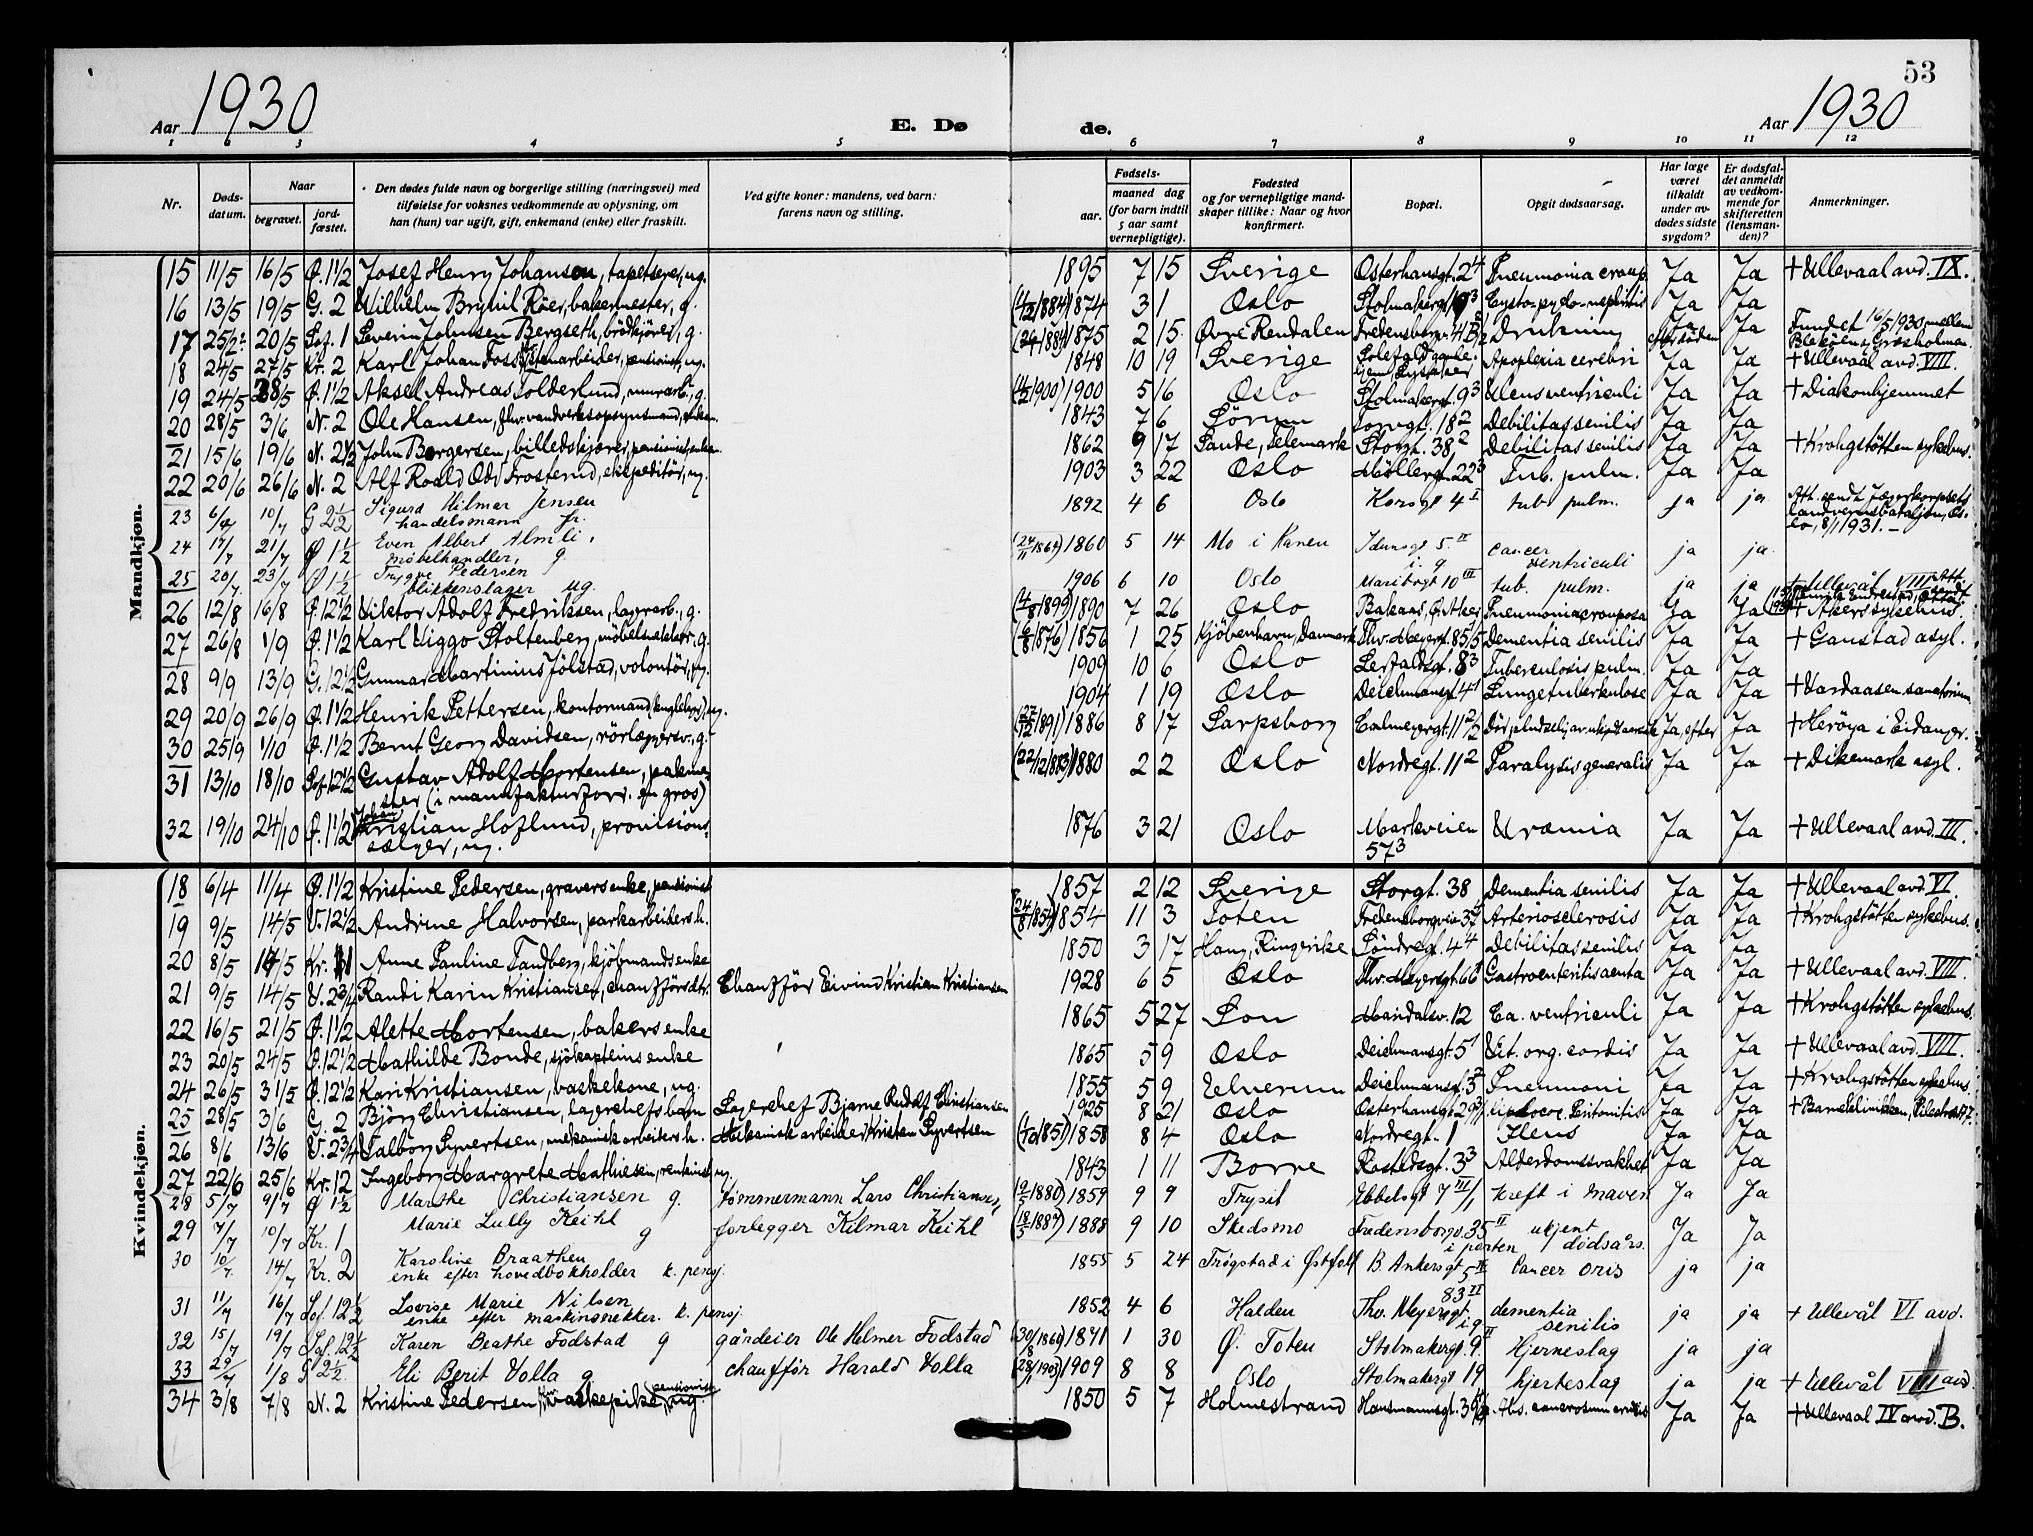 53
Aar 1930
E. Dø de.
Aar 1930
1 2 3 4 5 6 7 8 9 10 11 12
Nr.
Døds-
datum.
Naar
begravet.
jord-
fæstet.
Den dødes fulde navn og borgerlige stilling (næringsvei) med
tilføielse for voksnes vedkommende av oplysning, om
han (hun) var ugift, gift, enkemand (enke) eller fraskilt.
Ved gifte koner: mandens, ved barn:
farens navn og stilling.
Fødsels-
aar.
maaned dag
(for barn indtil
5 aar samt
vernepligtige).
Fødested
og for vernepligtige mand-
skaper tillike: Naar og hvor
konfirmert.
Bopæl.
Opgit dødsaarsag.
Har læge
været
tilkaldt
under av-
dødes sidste
sygdom?
Er dødsfal-
det anmeldt
av vedkom-
mende for
skifteretten
(lensman-
den)?
Anmerkninger.
Mandkjøn.
15 11/5 16/5 Ø. 1 1/2 Josef Henry Johansen, tapetserer, ug. 1895 7 15 Sverige Osterhausgt. 2 4 Pneumonia croup. Ja Ja + Ullevaal avd. IX.
16 13/5 19/5 G. 2 Wilhelm Brynil Röer, bakermester, g. 1874 3 1 Oslo Stolmakergt. Cysto-pyelo-nephritis Ja Ja
17 20/5 Sof. 1 Severin Johnsen Bergseth, brödkjörer, g. 1875 2 15 Øvre Rendalen Fredensborgv. Drukning efter döden Ja Fundet 16/5 1930 mellem
Blekøen og Græsholmen.
18 24/5 27/5 Kr. 2 Karl Johan Foss, pensionist, ug. 1848 10 19 Sverige Apoplexia cerebri Ja Ja + Ullevaal avd. VIII.
19 24/5 28/5 Ø. 1 1/2 Aksel Andreas Solderlund, murarb., g. 1900 5 16 Oslo Stolmakergt. 9 3 Ulcus ventriculi Ja Ja + Diakonhjemmet
20 28/5 3/6 N. 2 Ole Hansen, fhv. vandverksopsynsmand, enkem. 1843 7 6 Sörum Torvgt. 18 2 Debilitas senilis Ja Ja
21 15/6 19/6 N. 2 1/2 John Borgersen, billedskjærer, pensionist, enkem. 1862 9 17 Sande, Telemark Storgt. 38 2 Debilitas senilis Ja Ja + Krohgstötten sykehus.
22 20/6 26/6 N. 2 Alf Roald Odd Frosterud, ekspeditör, ug. 1903 3 22 Oslo Möllergt. 22 3 Tub. pulm. Ja Ja
23 10/7 G 2 1/2 Sigurd Hilmar Jensen
handelsmann fr. 1892 4 6 Oslo Korsgt 4 I tub. pulm. ja ja Att. sendt Jegerkorpsets
landvernsbataljon, Os-
lo, 8/1 1931. -
24 17/7 21/7 Ø 1 1/2 Even Albert Almli,
møbelhandler, g. 1860 5 14 Mo i Ranen Idunsgt 5 II
i. g. cancer
ventriculi ja ja
25 20/7 23/7 Ø 1 1/2 Trygve Pedersen
blikkenslager ug. 1906 6 10 Oslo Maribogt 10 III tub. pulm. ja ja + Ullevål VIII
26 12/8 16/8 Ø. 12 1/2 Viktor Adolf Fredriksen, lagerarb., g. (4/8 1899) 1890 7 26 Oslo Bakaas, Ø. Aker Pneumonia crouposa Ja Ja + Akers sykehus
27 26/8 1/9 Ø. 1 1/2 Karl Viggo Stoltenberg, möbelsnekker, g. 1856 1 25 Kjöbenhavn, Danmark Thv. Meyersgt. 85,5 Dementia senilis Ja Ja + Gaustad asyl.
28 9/9 13/9 G. 12 1/2 Gunnar Martinius Jölstad, volontör, ug. 1909 10 6 Oslo 8 3 Tuberculosis pulm. Ja Ja
29 20/9 26/9 Ø. 1 1/2 Henrik Pettersen, kontormand, ug. 1904 1 19 Oslo Deichmansgt. 4 1 Lungetuberkulose Ja Ja + Vardaasen sanatorium
30 25/9 1/10 Ø. 1 1/2 Bernt Georg Davidsen, rörlæggersv., g. 1886 8 17 Sarpsborg Calmeyersgt. 11 Ja, efter Ja + Heröya i Eidanger.
31 13/10 18/10 Sof. 12 1/2 Gustav Adolf Mortensen, pakme-
ster (i manufakturforr. en gros) (22/12 1883) 1880 2 2 Oslo Nordregt. 11 2 Paralysis generalis Ja Ja + Dikemark asyl.
32 19/10 24/10 Ø. 1 1/2 Johan
Kristian Hoflund, provisions-
sælger, ug. 1876 3 21 Oslo Markveien
57 3 Uræmia Ja Ja + Ullevaal avd. III.
Kvindekjøn.
18 6/4 11/4 Ø. 1 1/2 Kristine Pedersen, gravers enke, pensionist 1857 2 12 Sverige Storgt. 38 Dementia senilis Ja Ja + Ullevaal avd. VI
19 9/5 14/5 V. 12 1/2 Andrine Halvorsen, parkarbeiders h. 1854 11 3 Toten Fredensborgvei 37 Arteriosclerosis Ja Ja + Krohgstötten sykehus.
20 8/5 14/5 Kr. 1 Anne Pauline Tandberg, kjöbmands enke 1850 3 17 Haug, Ringerike Söndregt. 4 4 Debilitas senilis Ja Ja
21 9/5 14/5 V. 2 3/4 Randi Karin Kristiansen, chauffförs dtr. Chaufför Eivind Kristian Kristiansen 1928 6 5 Oslo Thv. Meyersgt. 66 Gastroenteritis acuta Ja Ja + Ullevaal avd. VIII.
22 16/5 21/5 Ø. 1 1/2 Alette Mortensen, bakers enke 1865 5 27 Son Maridalsv. 12 Ca. ventriculi Ja Ja + Krohgstötten sykehus.
23 20/5 24/5 Ø. 12 1/2 Mathilde Bonde, sjökapteins enke 1865 5 9 Oslo Deichmansgt. 5 1 Vit. org. cordis Ja Ja + Ullevaal avd. VIII.
24 26/5 31/5 Ø. 12 1/2 Kari Kristiansen, vaskekone, ug. 1855 5 9 Elverum Deichmansgt. 3 Pneumoni Ja Ja + Krohgstötten sykehus
25 28/5 3/6 G. 2 Björg Christiansen, lagerchefs barn Lagerchef Bjarne Rudolf Christiansen 1925 8 21 Oslo Osterhausgt. 29 Peritonitis Ja Ja + Barneklinikken, Pilestræde 77.
26 8/6 13/6 V. 2 3/4 Valborg Syvertsen, mekanisk arbeiders h. Mekanisk arbeider Kristen Syvertsen 1858 8 4 Oslo Nordregt. 1 Ileus Ja Ja
27 22/6 25/6 Kr. 12 Ingeborg Margrete Mathiesen, ug. 1843 1 11 Borre Rostedsgt. 3 3 Alderdomssvakhet Ja Ja
28 5/7 9/7 Ø 1 1/2 Marthe Christiansen g. tömmermann Lars Christiansen 1859 9 9 Trysil Ebbelsgt 7 III/1 Kreft i maven Ja Ja
29 7/7 10/7 Kr. 1 Marie Lully Keihl g forlegger Hilmar Keihl 1888 9 10 Skedsmo Fredensborgv. 35 II
i porten ukjent
dødsårs. Ja Ja
30 10/7 14/7 Kr. 2 Karoline Braathen
enke efter hovedbokholder k. pensj. 1855 5 24 Trøgstad i Østfold B. Ankersgt 5 II Cancer oris ja ja
31 11/7 16/7 Sof. 12 1/2 Lovise Marie Nilsen
enke efter maskinsnekker. k. pensj. 1852 4 6 Halden Thv. Meyersgt 83 II
i g dementia
senilis ja ja + Ullevål VI avd.
32 15/7 19/7 Sof. 12 1/2 Karen Beathe Fodstad g gårdeier Ole Helmer Fodstad 1841 1 30 Ø. Toten Stolmakergt. 9 II Hjerneslag ja ja
33 29/7 1/8 G 2 1/2 Eli Berit Volla g chaufför Harald Volla 1909 8 8 Oslo Stolmakergt 19 hjerteslag ja ja + Ullevål VIII avd
34 3/8 7/8 N. 2 Kristine Pedersen, vaskepike, ug. pensionist 1850 5 7 Holmestrand Hausmannsgt. Ja Ja + Ullevaal IV avd. B.